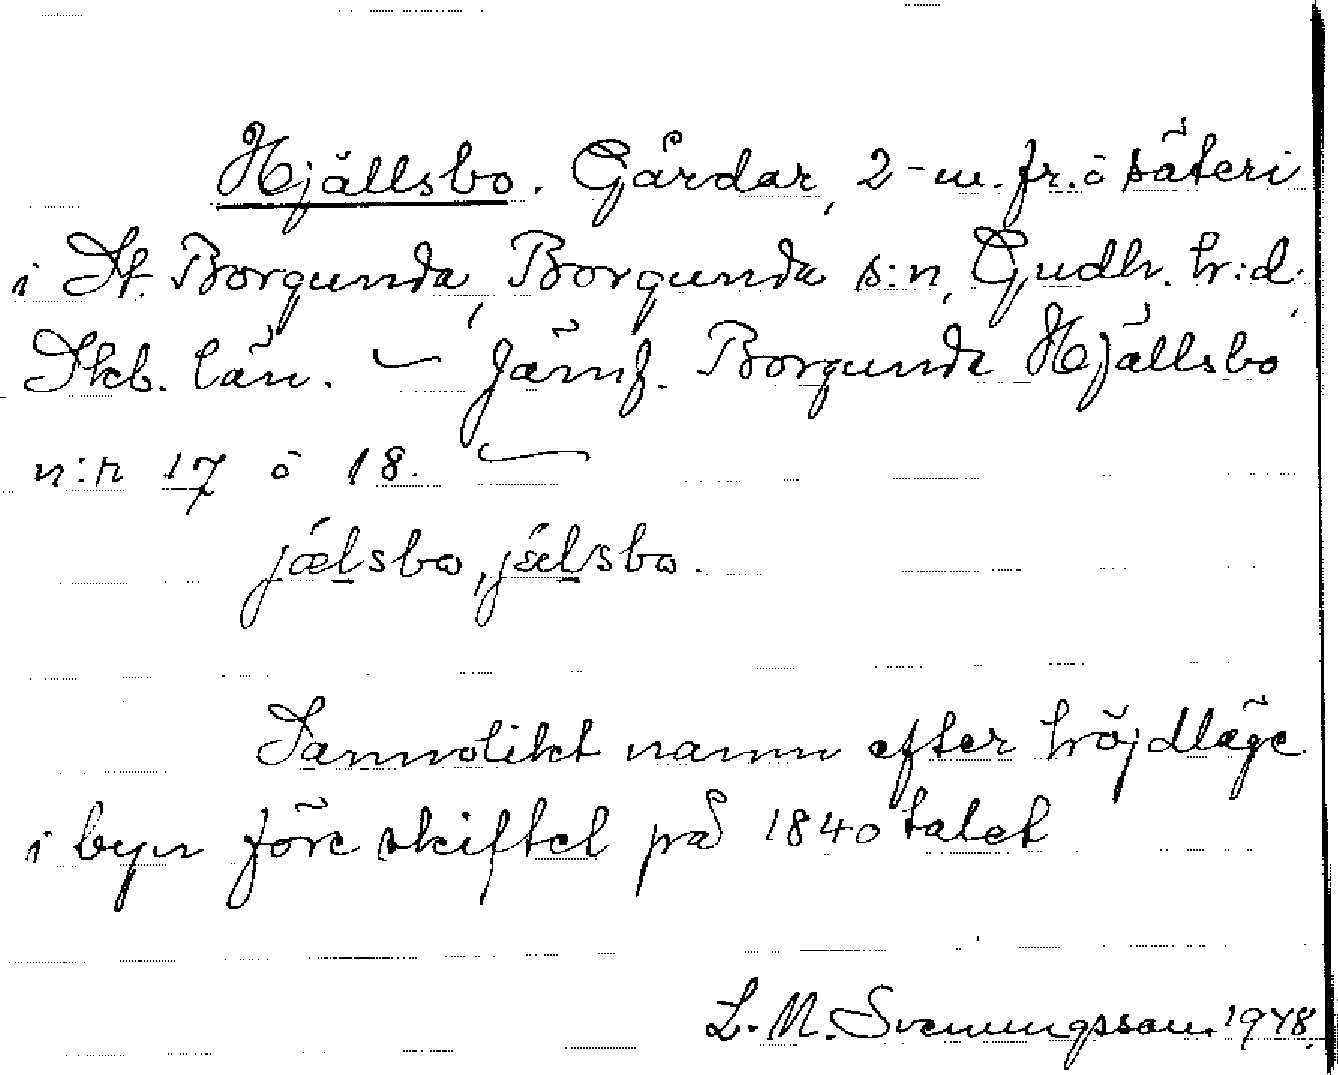 Hjällsbo. Gårdar, 2-m. fr. o säteri
i St. Borgunda, Borgunda s:n, Gudh. h:d,
Skb. län. — Jämf. Borgunda Hjällsbo
n:r 17 o 18. —
jælsbo, jælsbo.
Sannolikt namn efter höjdläge
i byn före skiftet på 1840 talet
L. M. Svenungsson. 1948.